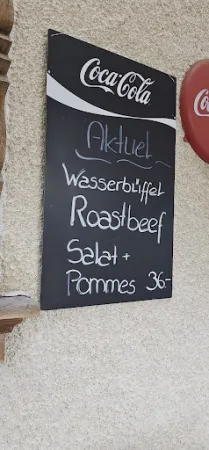 Coca-Cola
Aktuel
Wasserbüffel
Roastbeef
Salat +
Pommes 36.-